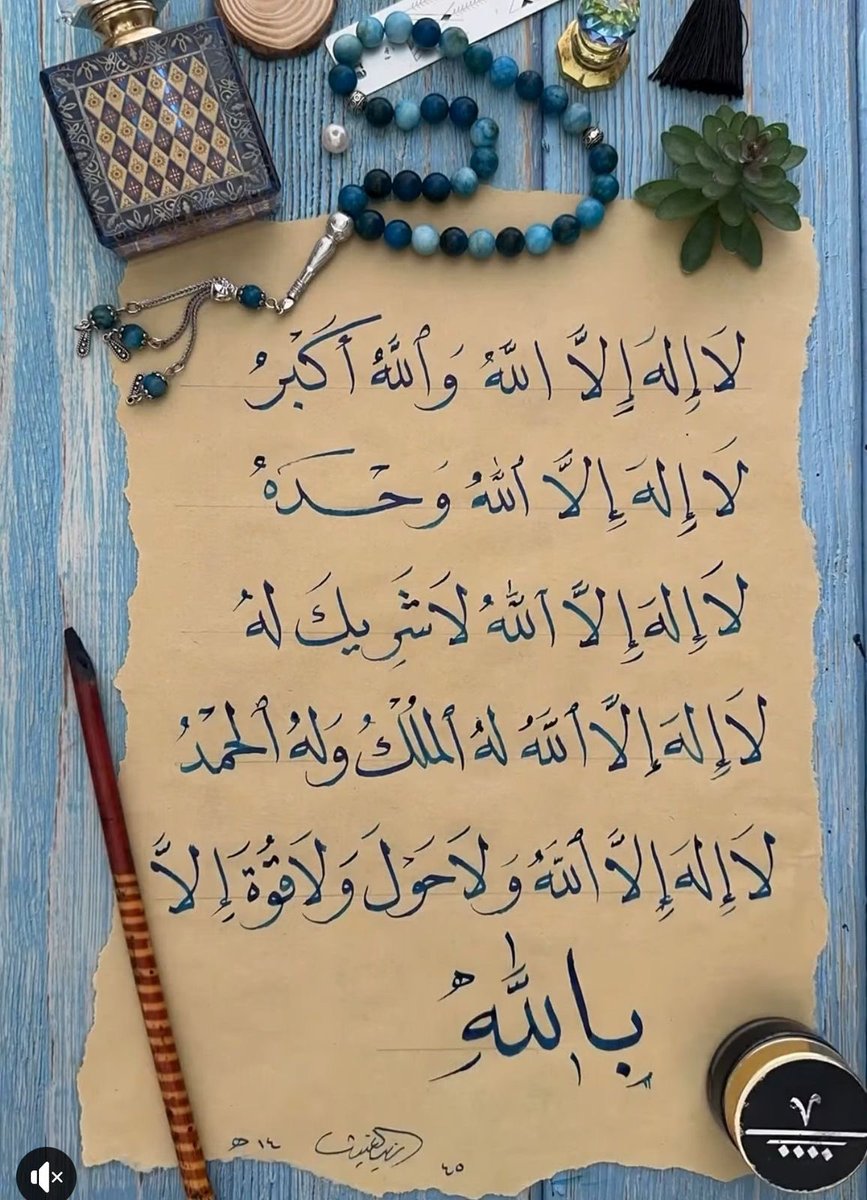 لَا إِلهَ إِلَّا اللَّهُ وَٱللَّهُ أَكْبَرُ
لَا إِلهَ إِلَّا ٱللَّهُ وَحْدَهُ
لَا إِلهَ إِلَّا ٱللَّهُ لَا شَرِيكَ لَهُ
لَا إِلهَ إِلَّا ٱللَّهُ لَهُ ٱلْمُلْكُ وَلَهُ ٱلْحَمْدُ
لَا إِلهَ إِلَّا ٱللَّهُ وَلَا حَوْلَ وَلَا قُوَّةَ إِلَّا
بِاللَّهِ
١٤ ھ
٤٥